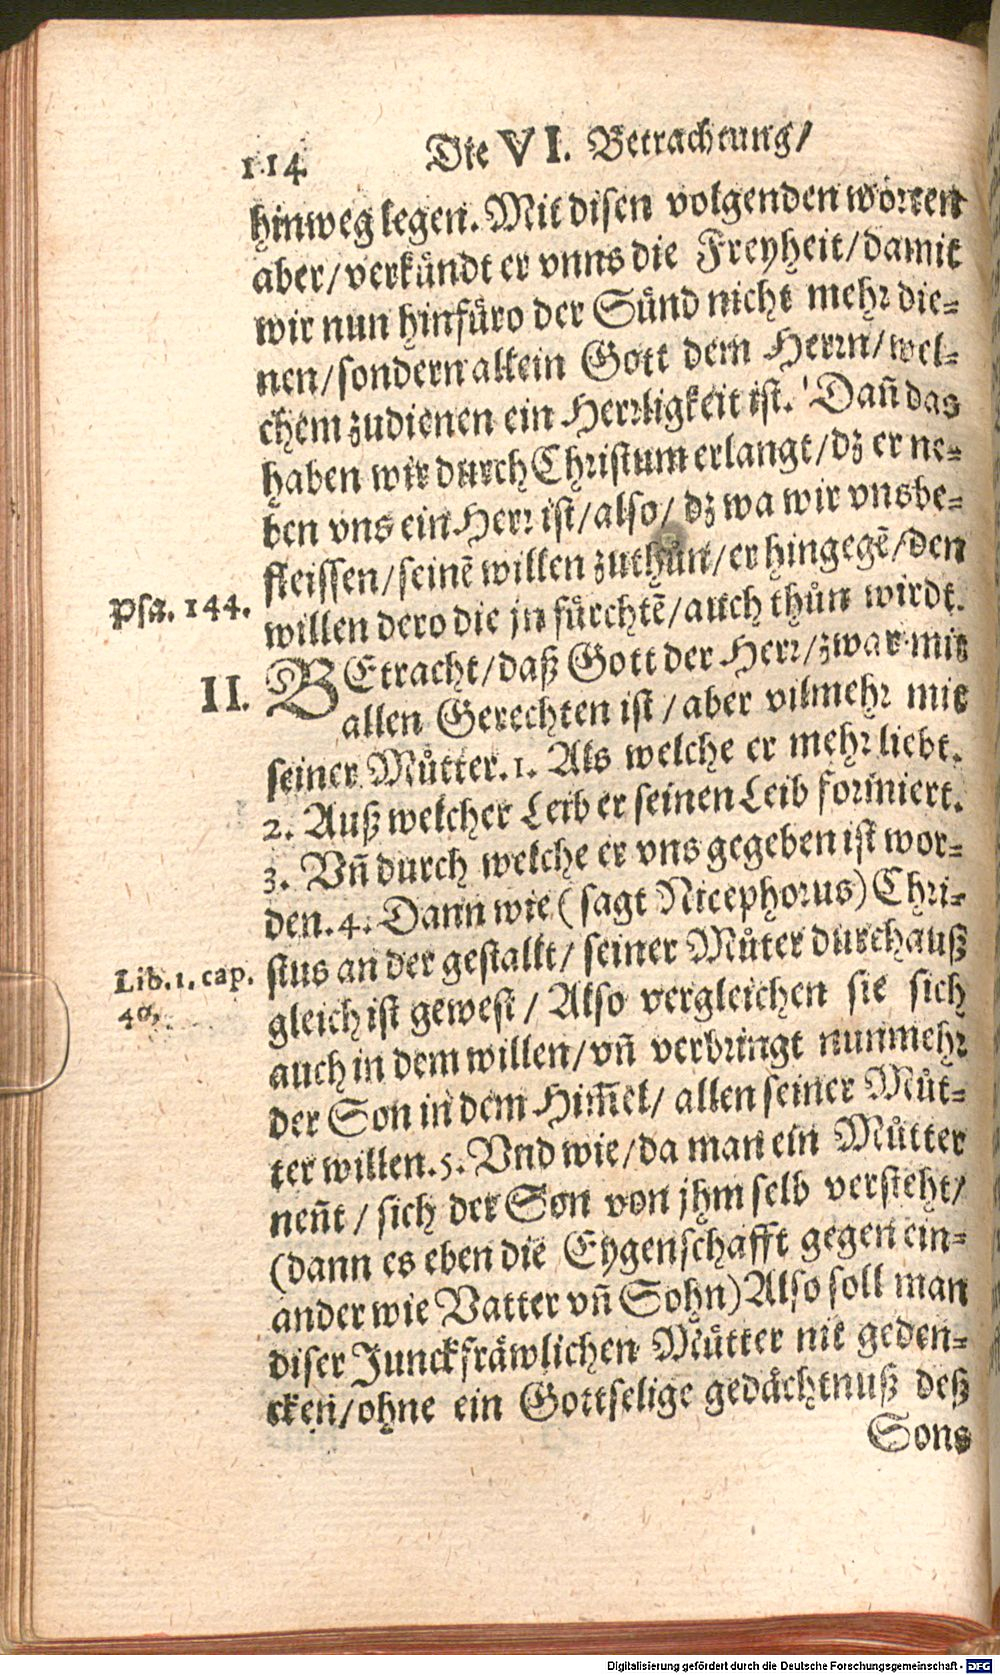 114 Die VI. Betrachtung/
hinweg legen. Mit disen volgenden worten
aber/verkündt er vnns die Freyheit/damit
wir nun hinfüro der Sünd nicht mehr die-
nen/sondern allein Gott dem Herrn/wel-
chem zudienen ein Herrligkeit ist. Dañ das
haben wir durch Christum erlangt/dz er ne-
ben vns ein Herr ist/also/dz wa wir vnsbe-
fleissen/seinẽ willen zuthůn/er hingegẽ/den
Psa. 144.
willen dero die jn fürchtẽ/auch thůn wirdt.
II.
BEtracht/daß Gott der Herr/zwar mit
allen Gerechten ist/aber vilmehr mit
seiner Můtter. 1. Als welche er mehr liebt.
2. Auß welcher Leib er seinen Leib formiert.
3. Vñ durch welche er vns gegeben ist wor-
den. 4. Dann wie (sagt Nicephorus) Chri-
Lib. 1. cap.
40.
stus an der gestallt/seiner Můter durchauß
gleich ist gewest/Also vergleichen sie sich
auch in dem willen/vñ verbringt nunmehr
der Son in dem Him̃el/allen seiner Můt-
ter willen. 5. Vnd wie/da man ein Můtter
neñt/sich der Son von jhm selb versteht/
(dann es eben die Eygenschafft gegen ein-
ander wie Vatter vñ Sohn) Also soll man
diser Junckfräwlichen Můtter nit geden-
cken/ohne ein Gottselige gedächtnuß deß
Sons
Digitalisierung gefördert durch die Deutsche Forschungsgemeinschaft - DFG